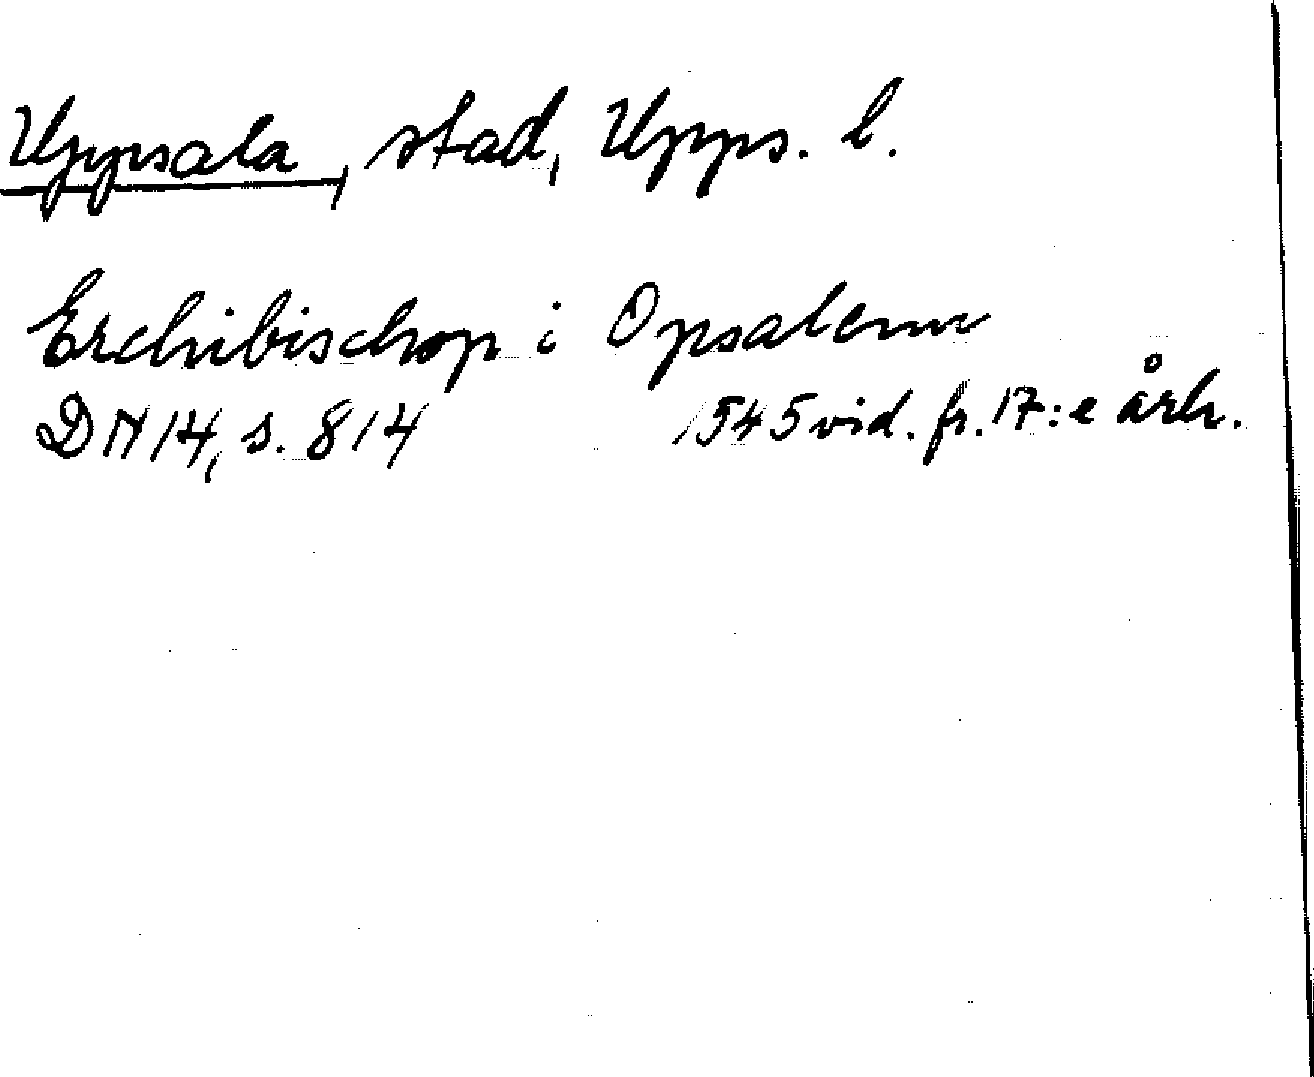 Uppsala, stad, Upps. l.
Erchibischop i Opsalenn
DN 14, s. 814 1545 vid. fr. 17:e årh.